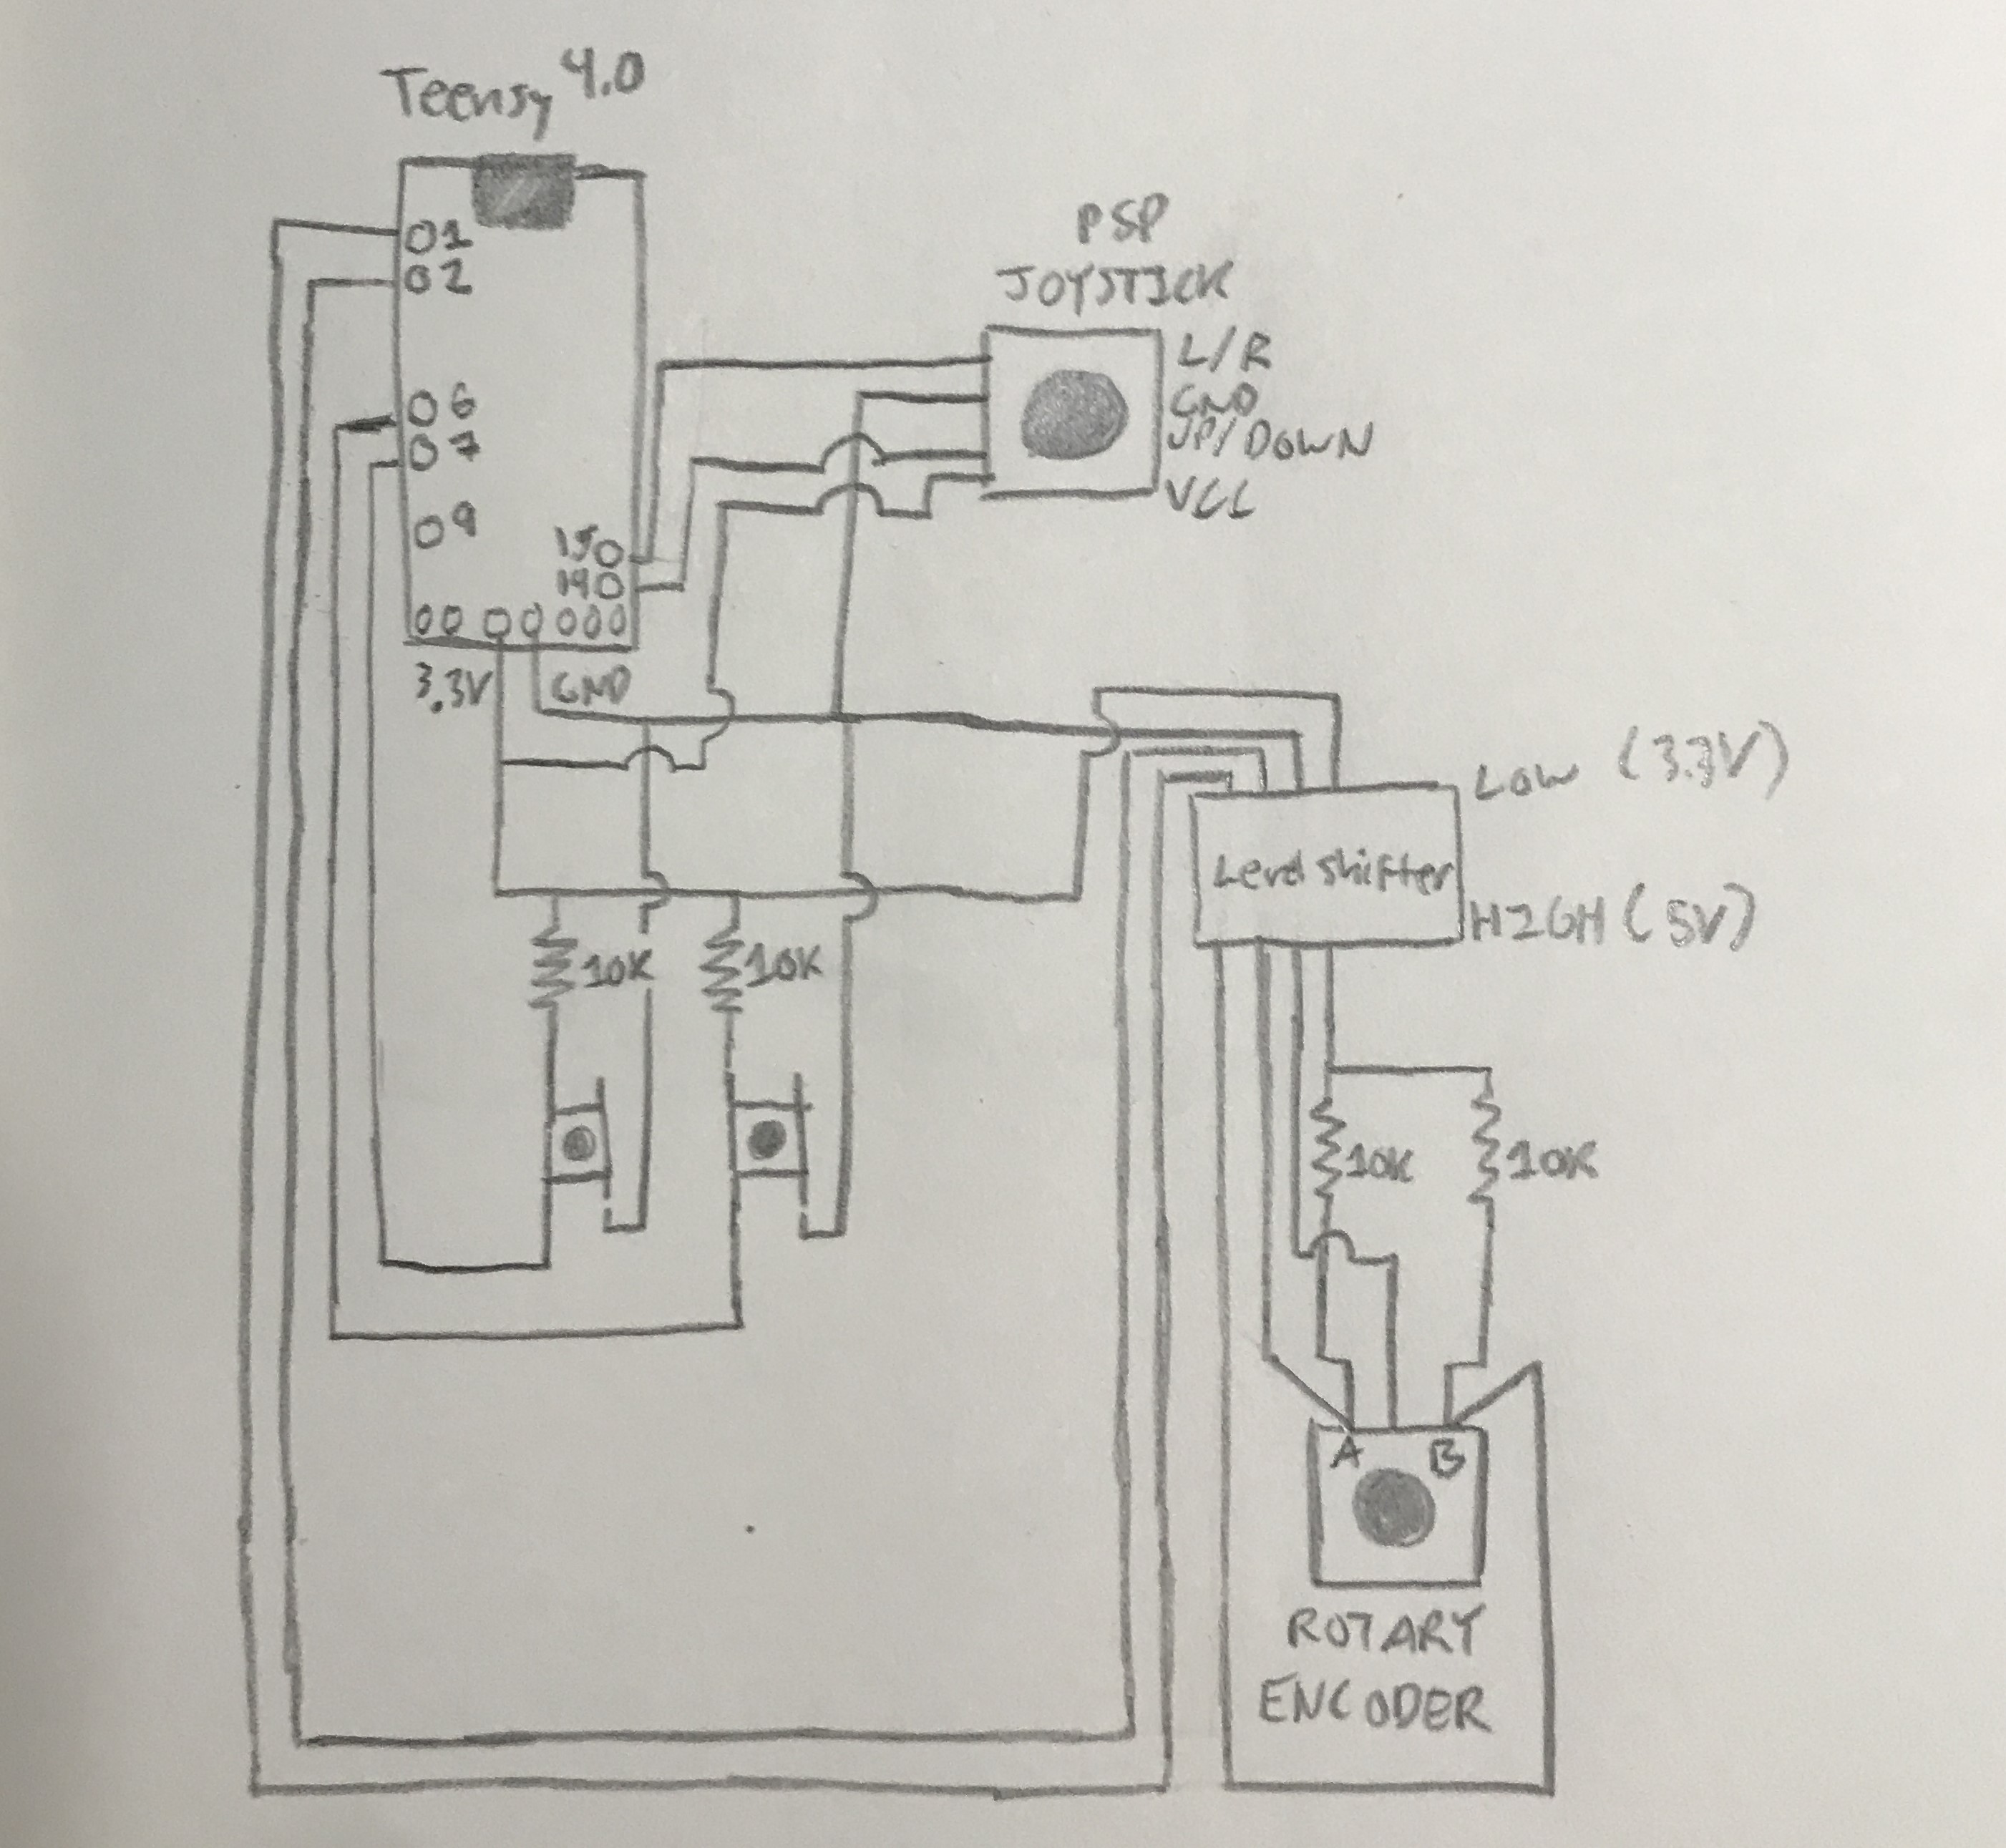 Teensy 4.0
1
2
6
7
9
15
14
3.3V
GND
PSP
JOYSTICK
L/R
GND
UP/DOWN
VCC
LOW (3.3V)
Level shifter
HIGH (5V)
10K
10K
10K
10K
A
B
ROTARY
ENCODER